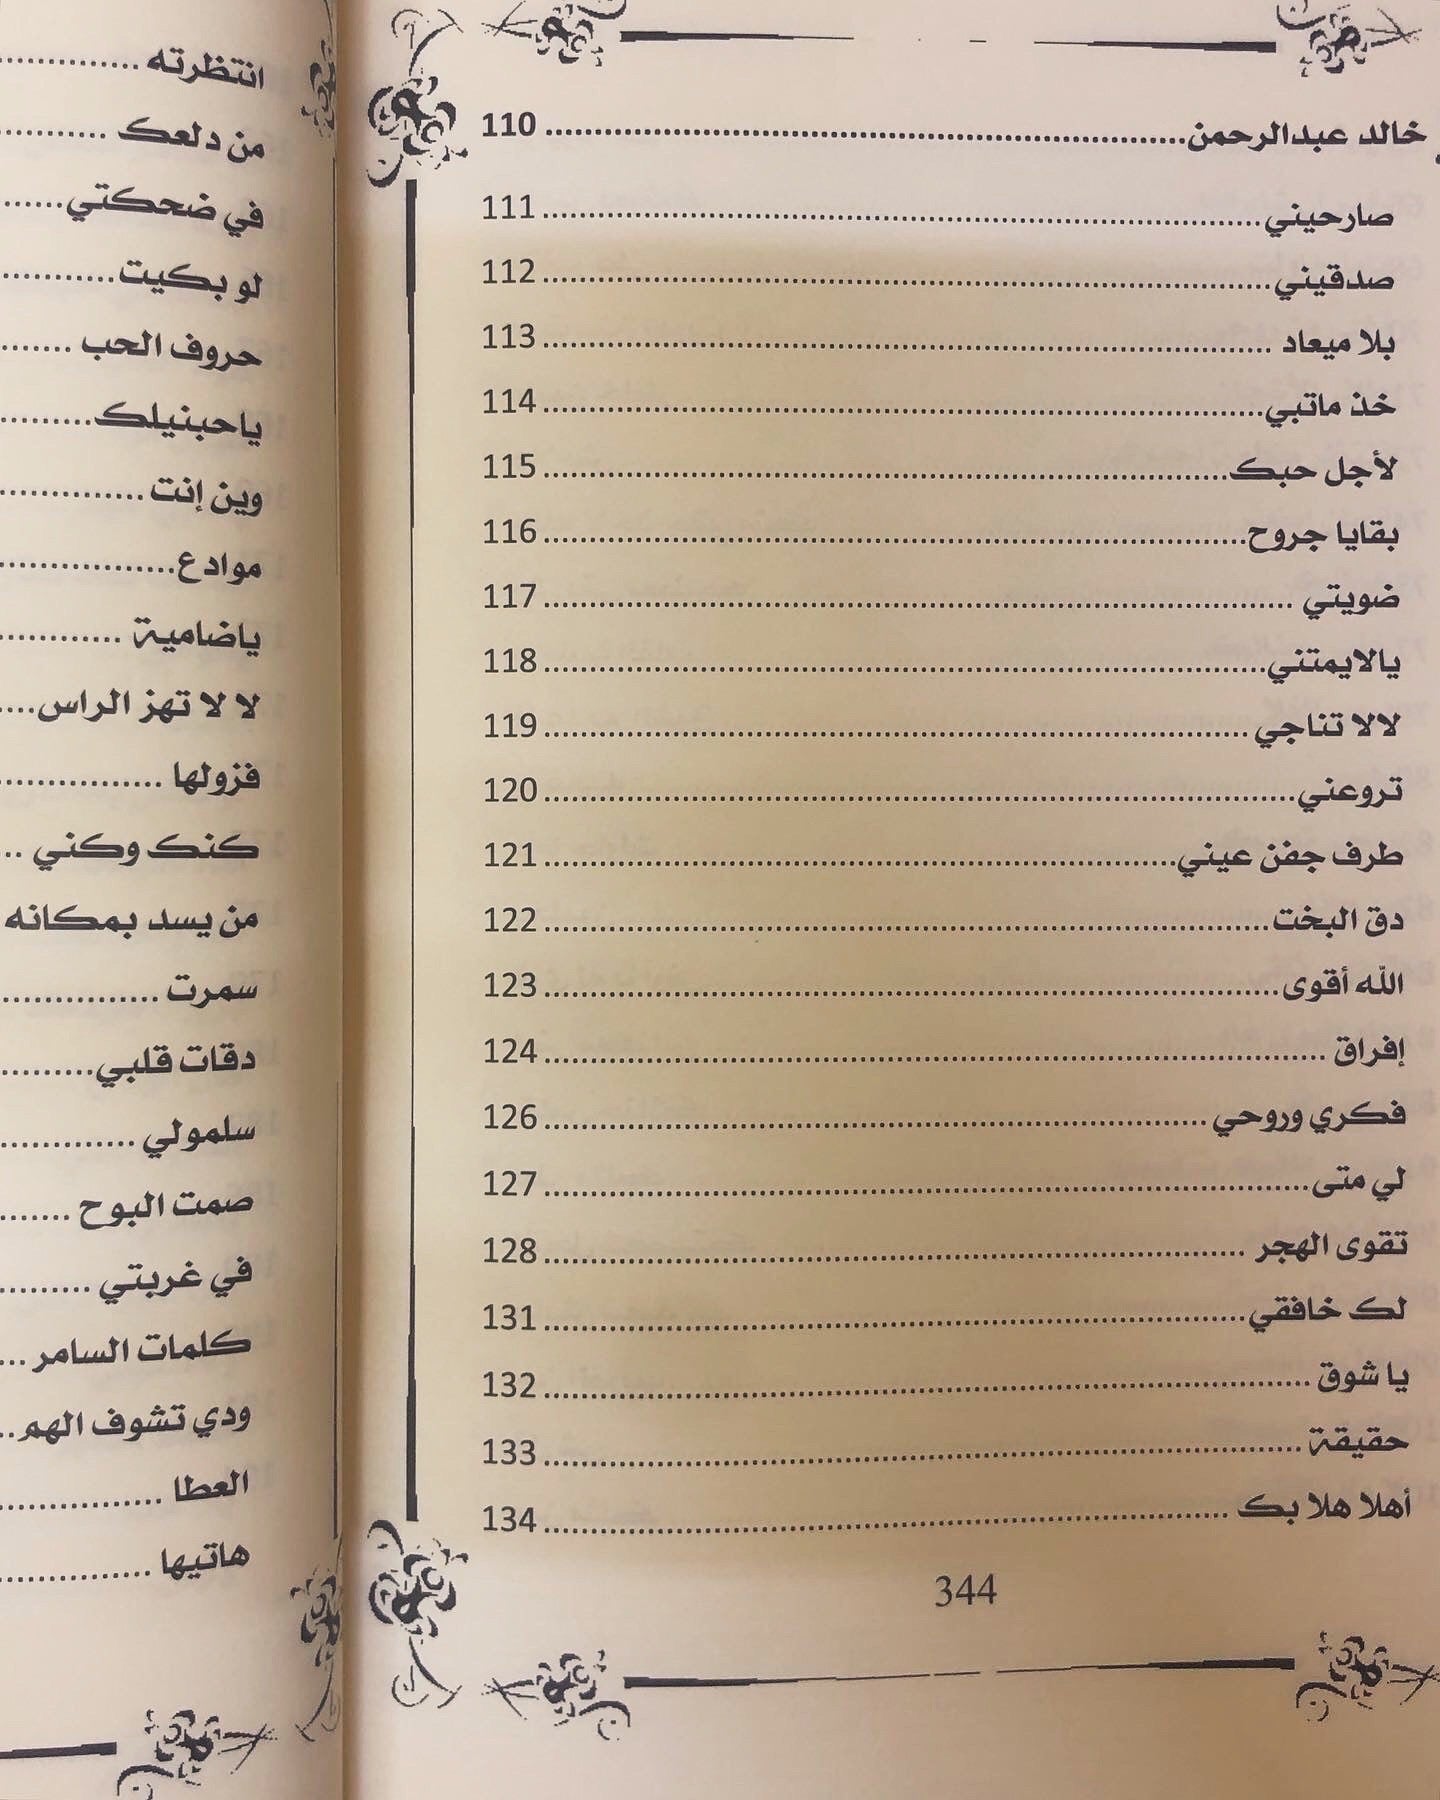 خالد عبدالرحمن........................................ 110
صارحيني........................................ 111
صدقيني........................................ 112
بلا ميعاد ........................................ 113
خذ ماتبي........................................ 114
لأجل حبك........................................ 115
بقايا جروح........................................ 116
ضويتي ........................................ 117
يالايمتني........................................ 118
لالا تناجي ........................................ 119
تروعني........................................ 120
طرف جفن عيني........................................ 121
دق البخت........................................ 122
الله أقوى........................................ 123
إفراق ........................................ 124
فكري وروحي ........................................ 126
لي متى........................................ 127
تقوى الهجر ........................................ 128
لك خافقي........................................ 131
يا شوق ........................................ 132
حقيقة ........................................ 133
أهلا هلا بك ........................................ 134
344
انتظرته ..............
من دلعك ...........
في ضحكتي......
لو بكيت............
حروف الحب ........
ياحبنيلك..........
وين إنت ...............
موادع..................
ياضامية ............
لا لا تهز الراس....
فزولها ................
كنك وكني ..
من يسد بمكانه
سمرت ................
دقات قلبي..........
سلمولي ..............
صمت البوح .......
في غربتي ..........
كلمات السامر ...
ودي تشوف الهم..
العطا ................
هاتيها ...............